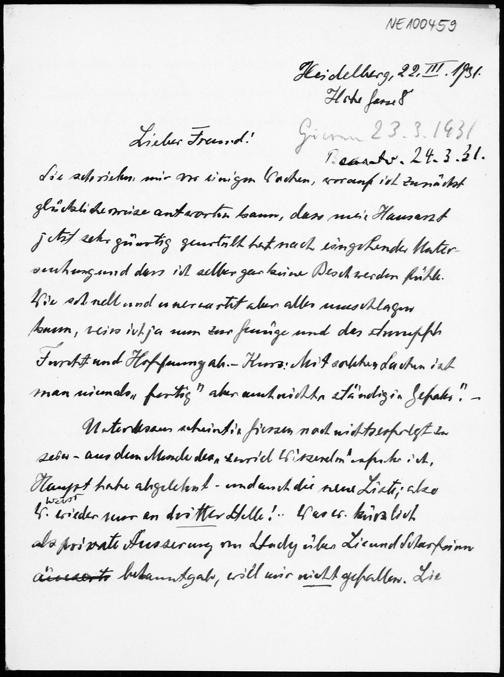 NE100459
Heidelberg, 22. III. 1931.
Hohe Gasse 8
23.3.1931
24.3.31.
Lieber Freund!
Sie schrieben mir vor einigen Wochen, worauf ich zunächst
glücklicherweise antworten kann, dass mein Hausarzt
jetzt sehr günstig geurteilt hat nach eingehender Unter-
suchung und dass ich selber gar keine Beschwerden fühle.
Wie schnell und unerwartet aber alles umschlagen
kann, weiss ich ja nun zur Genüge und das stumpft
Furcht und Hoffnung ab. - Kurz: Mit solchen Sachen ist
man niemals "fertig" aber auch nicht "ständig in Gefahr". -
Unterdessen scheint in Giessen noch nichts erfolgt zu
sein - aus dem Munde des "zuviel Wissenden" erfuhr ich,
Haupt habe abgelehnt - und auch die neue Liste; also
W. wieder nur an dritter Stelle! - Was W. kürzlich
als private Äusserung von über Sie und Scharfsinn
bekanntgab, will mir nicht gefallen. Sie